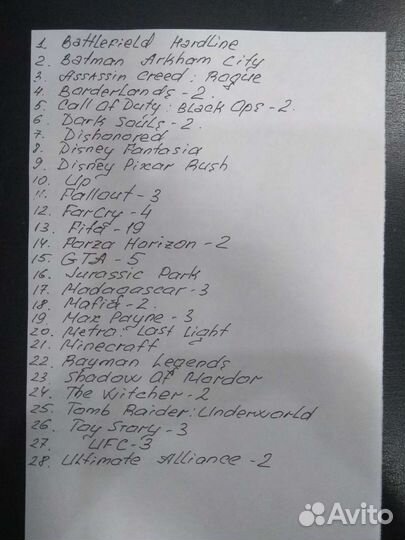 1. Battlefield Hardline
2. Batman Arkham City
3. Assassin Creed: Rogue
4. Borderlands - 2.
5. Call Of Duty: Black Ops - 2.
6. Dark Souls - 2.
7. Dishonored
8. Disney Fantasia
9. Disney Pixar Rush
10. Up
11. Fallout - 3
12. FarCry - 4
13. Fifa - 19
14. Forza Horizon - 2
15. GTA - 5
16. Jurassic Park
17. Madagascar - 3
18. Mafia - 2.
19 Max Payne - 3
20. Metro: Last Light
21. Minecraft
22. Rayman Legends
23. Shadow Of Mordor
24. The Witcher - 2
25. Tomb Raider: Underworld
26. Toy Story - 3
27. UFC - 3
28. Ultimate Alliance - 2
Avito